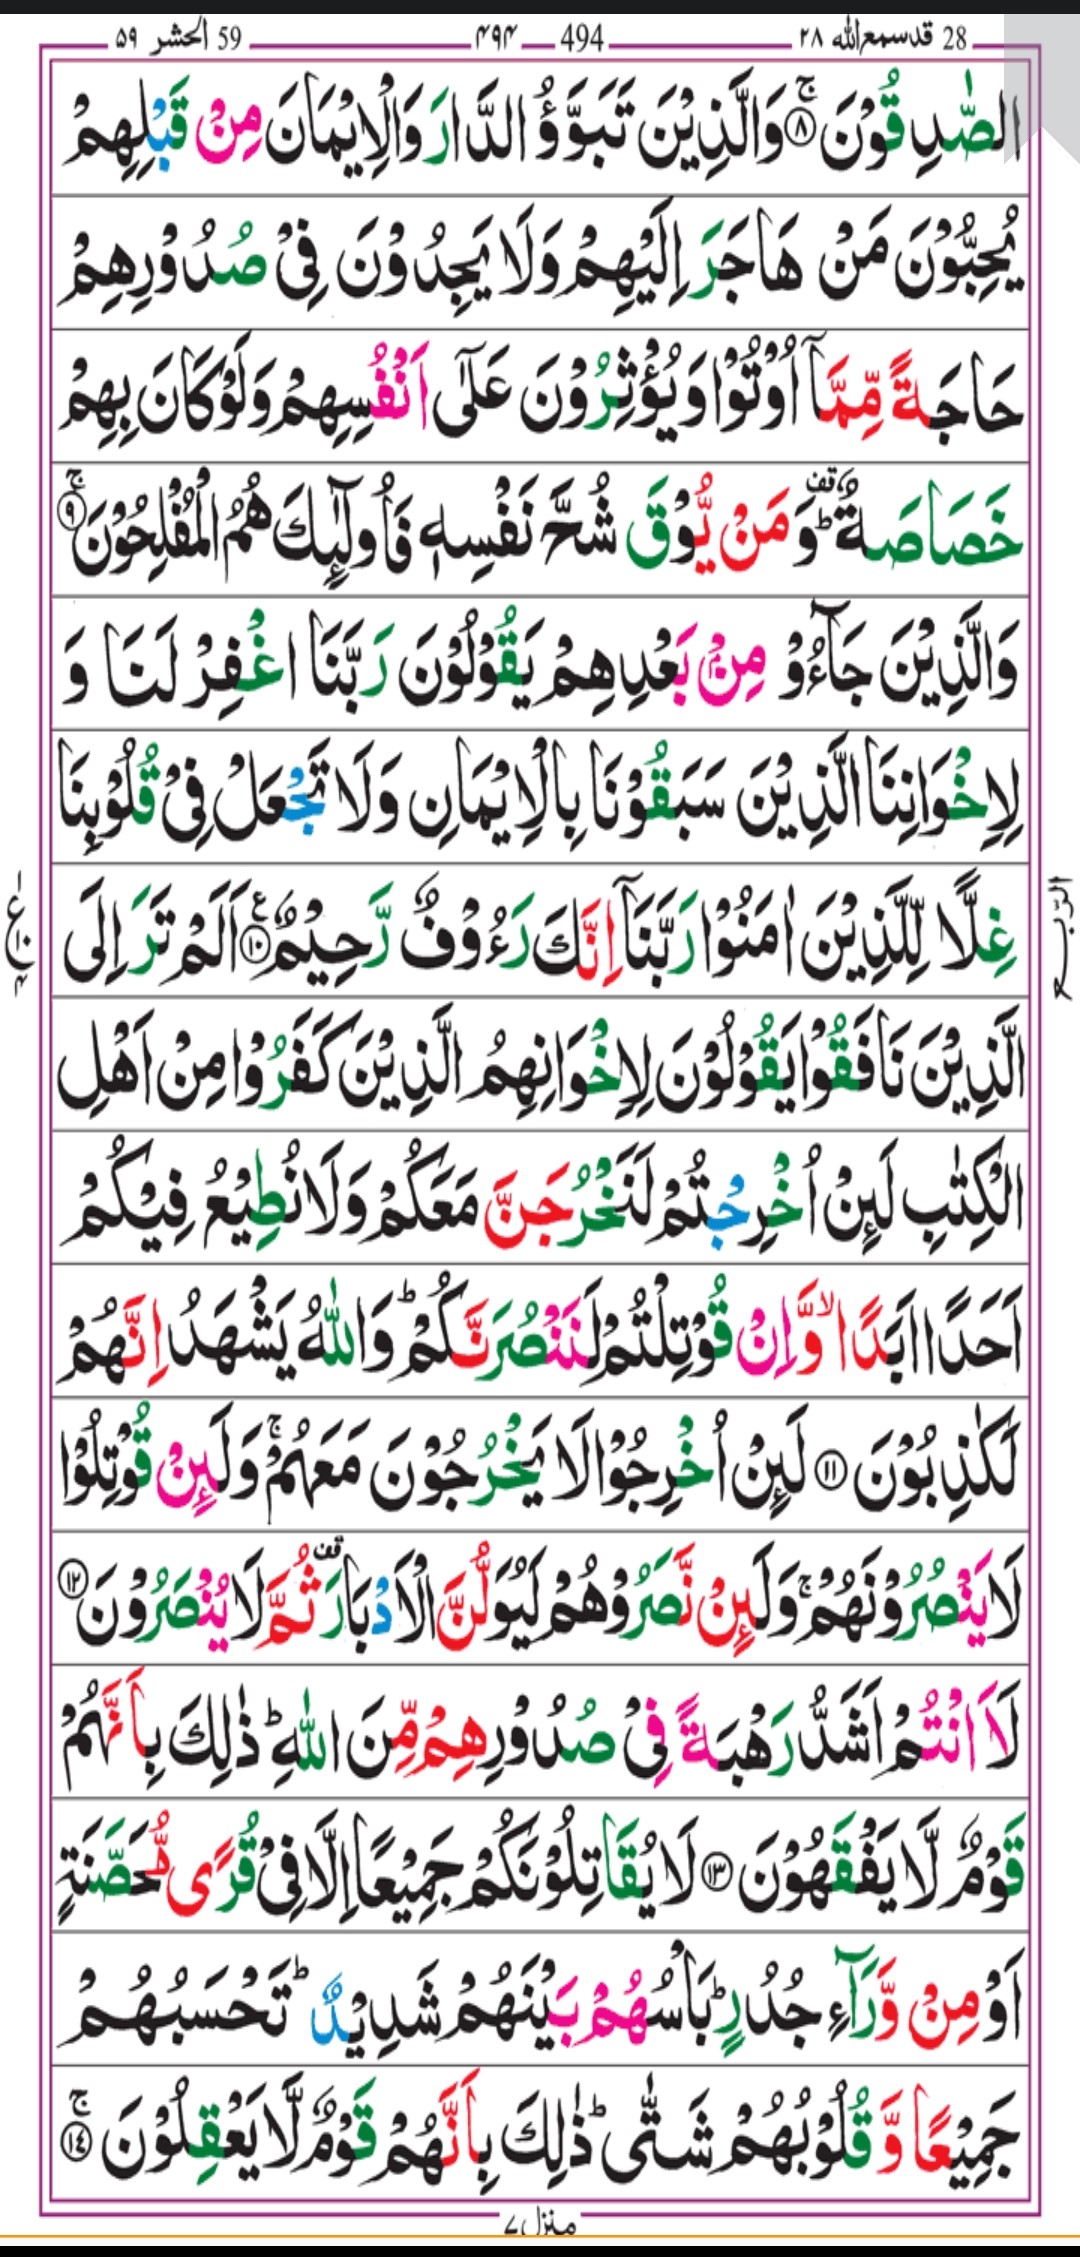 59 الحشر ۵۹ — 494 — ۴۹۴ — 28 قدسمع الله ۲۸
الصّٰدِقُوْنَ ۚ‏﴿۸﴾ وَالَّذِيْنَ تَبَوَّؤُ الدَّارَ وَالْاِيْمَانَ مِنْ قَبْلِهِمْ
يُحِبُّوْنَ مَنْ هَاجَرَ اِلَيْهِمْ وَلَا يَجِدُوْنَ فِىْ صُدُوْرِهِمْ
حَاجَةً مِّمَّاۤ اُوْتُوْا وَيُؤْثِرُوْنَ عَلٰٓى اَنْفُسِهِمْ وَلَوْ كَانَ بِهِمْ
خَصَاصَةٌ ؕ قف وَمَنْ يُّوْقَ شُحَّ نَفْسِهٖ فَاُولٰٓئِكَ هُمُ الْمُفْلِحُوْنَ ۚ‏﴿۹﴾
وَالَّذِيْنَ جَآءُوْ مِنْۢ بَعْدِهِمْ يَقُوْلُوْنَ رَبَّنَا اغْفِرْ لَنَا وَ
لِاِخْوَانِنَا الَّذِيْنَ سَبَقُوْنَا بِالْاِيْمَانِ وَلَا تَجْعَلْ فِىْ قُلُوْبِنَا
غِلًّا لِّلَّذِيْنَ اٰمَنُوْا رَبَّنَاۤ اِنَّكَ رَءُوْفٌ رَّحِيْمٌ ﴿۱۰﴾ ع اَلَمْ تَرَ اِلَى
الَّذِيْنَ نَافَقُوْا يَقُوْلُوْنَ لِاِخْوَانِهِمُ الَّذِيْنَ كَفَرُوْا مِنْ اَهْلِ
الْكِتٰبِ لَئِنْ اُخْرِجْتُمْ لَنَخْرُجَنَّ مَعَكُمْ وَلَا نُطِيْعُ فِيْكُمْ
اَحَدًا اَبَدًا ۙ وَّاِنْ قُوْتِلْتُمْ لَنَنْصُرَنَّكُمْ ؕ وَاللّٰهُ يَشْهَدُ اِنَّهُمْ
لَكٰذِبُوْنَ ﴿۱۱﴾ لَئِنْ اُخْرِجُوْا لَا يَخْرُجُوْنَ مَعَهُمْ ۚ وَلَئِنْ قُوْتِلُوْا
لَا يَنْصُرُوْنَهُمْ ۚ وَلَئِنْ نَّصَرُوْهُمْ لَيُوَلُّنَّ الْاَدْبَارَ قف ثُمَّ لَا يُنْصَرُوْنَ ﴿۱۲﴾
لَاَ انْتُمْ اَشَدُّ رَهْبَةً فِىْ صُدُوْرِهِمْ مِّنَ اللّٰهِ ؕ ذٰلِكَ بِاَنَّهُمْ
قَوْمٌ لَّا يَفْقَهُوْنَ ﴿۱۳﴾ لَا يُقَاتِلُوْنَكُمْ جَمِيْعًا اِلَّا فِىْ قُرًى مُّحَصَّنَةٍ
اَوْ مِنْ وَّرَآءِ جُدُرٍ ؕ بَاْسُهُمْ بَيْنَهُمْ شَدِيْدٌ ؕ تَحْسَبُهُمْ
جَمِيْعًا وَّقُلُوْبُهُمْ شَتّٰى ؕ ذٰلِكَ بِاَنَّهُمْ قَوْمٌ لَّا يَعْقِلُوْنَ ۚ‏﴿۱٤﴾
الرّبع
ع ۱۰ ۴
منزل ۷